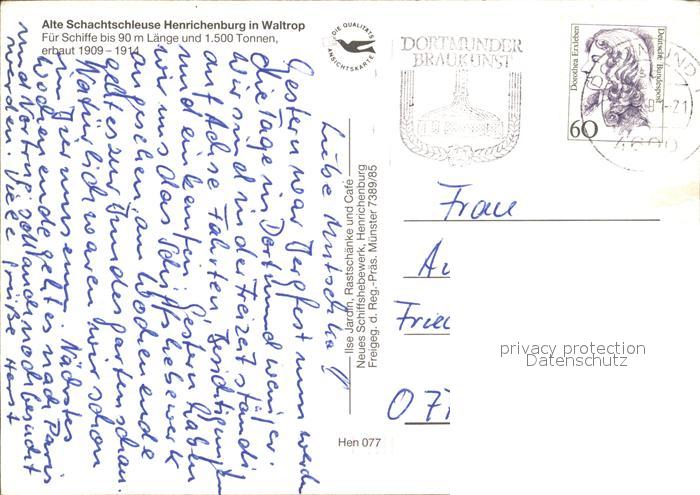 Alte Schachtschleuse Henrichenburg in Waltrop
Für Schiffe bis 90 m Länge und 1.500 Tonnen,
erbaut 1909 - 1914
DIE QUALITÄTS
ANSICHTSKARTE
DORTMUNDER
BRAUKUNST
Dorothea Erxleben
Deutsche Bundespost
60
4600
Liebe Mutschka
Gestern war Bergfest nun werden
die Tage in Dortmund weniger.
Wir sind in der Freizeit ständig
auf Achse Fahrten Besichtigungen
und einkaufen. Gestern haben
wir uns das Schiffshebewerk
angesehen, am Wochenende
geht es zur Bundesgartenschau.
Natürlich waren wir schon
im
Wochenende geht es nach Paris
und Vortrag Holland noch besucht
werden. Viele Grüße Horst
Ilse Jardin, Rastschänke und Cafe
Neues Schiffshebewerk, Henrichenburg
Freigeg. d. Reg.-Präs. Münster 7389/85
Frau
Hen 077
privacy protection
Datenschutz